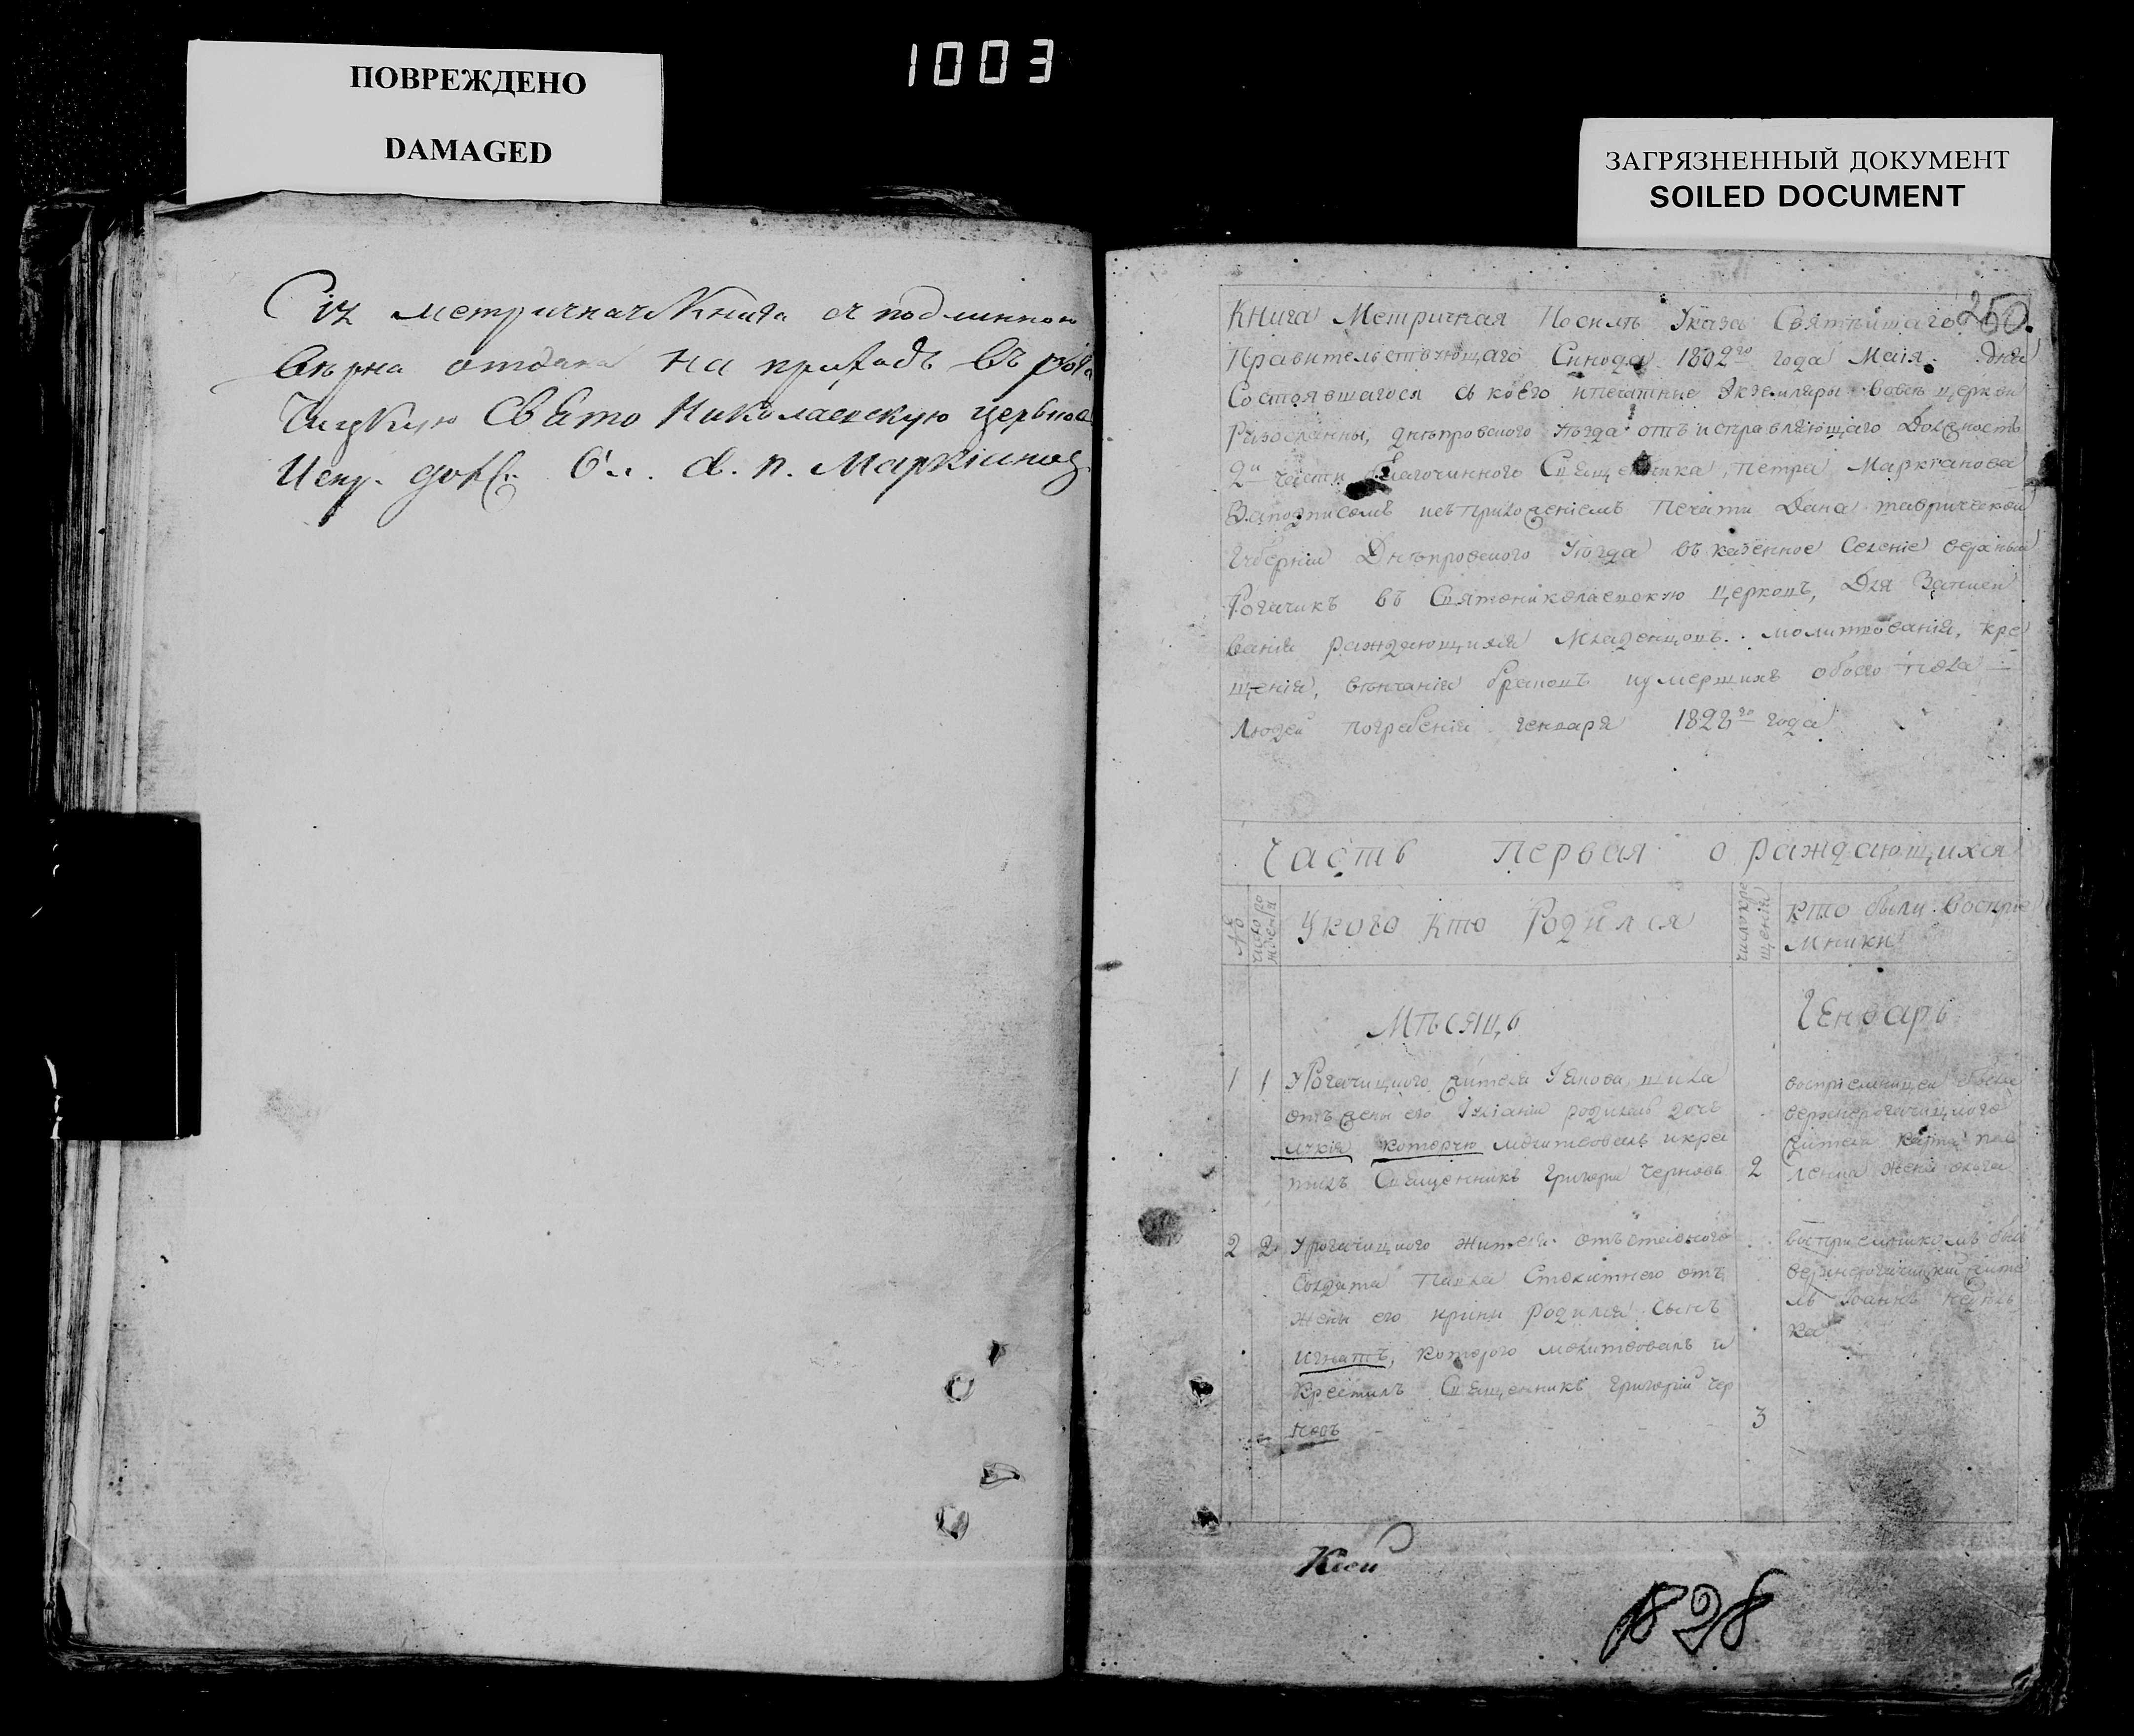 ПОВРЕЖДЕНО
DAMAGED
1003
ЗАГРЯЗНЕННЫЙ ДОКУМЕНТ
SOILED DOCUMENT
Сія метричная Книга съ подлинною
вѣрна отдана на приходъ въ рога
чицкую Свято Николаевскую церковь
Испр. долж. Бл. с. п. Маркіановъ
250.
Книга Метричная Посилѣ Указа Святѣйшаго
Правительствующаго Синода 1802го года Маія дня
Состоявшагося съ коего ипечатные Экземляры вовсѣ церкви
Разосланны, днѣпровского уѣзда отъ исправляющаго Должность
2й части Благочинного Священника Петра Маркіанова
Заподписомъ исъ приложеніемъ печати Дана таврической
Губерніи Днѣпровского Уѣзда въ казенное Селеніе верхный
Рогачикъ въ Святониколаевскую церковь, Для Записи
ванія раждающихся Младенцовъ молитвованія, кре
щенія, вѣнчанія браковъ иумершихъ обоего пола
Людей погребенія генваря 1828го года
Часть первая о раждающихся
№
число ро
жденія
Укого кто Родился
число кре
щенія
кто были воспріе
мники
Мѣсяцъ Генварь
1 1 У Рогачицкого жителя
отъ жены его родилась дочь
которую молитвовалъ икре
стилъ Священникъ Григорій Черновъ 2
воспріемницей была
верхнерогачицкого
жителя
жена
2 2 У рогачицкого жителя отъставного
Солдата Павла отъ
жены его ирини родился сынъ
игнатъ, которого молитвовалъ и
Крестилъ Священникъ Григорій Чер
новъ 3
воспріемникомъ былъ
верхнерогачицкій жите
ль Іоаннъ
ка
1828